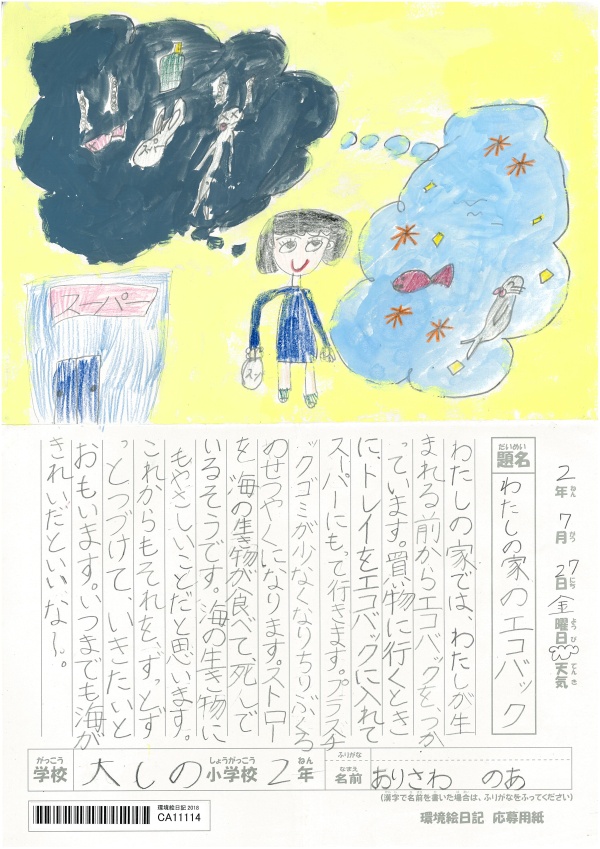 スーパー
スーパー
スー
2年 7月 27日 金曜日 天気
ねん がつ にち ようび てんき
だいめい
題名 わたしの家のエコバック
わたしの家では、わたしが生
まれる前からエコバックを、つか
っています。買い物に行くとき
に、トレイをエコバックに入れて
スーパーにもって行きます。プラスチ
ックゴミが少なくなりちりぶくろ
のせつやくになります。ストロー
を海の生き物が食べて、死んで
いるそうです。海の生き物に
もやさしいことだと思います。
これからもそれを、ずっとず
っとつづけて、いきたいと
おもいます。いつまでも海が
きれいだといいな〜。
がっこう しょうがっこう ねん
学校 大しの 小学校 2年
ふりがな
なまえ
名前 ありさわ のあ
(漢字で名前を書いた場合は、ふりがなをふってください)
環境絵日記2018
CA11114
環境絵日記 応募用紙